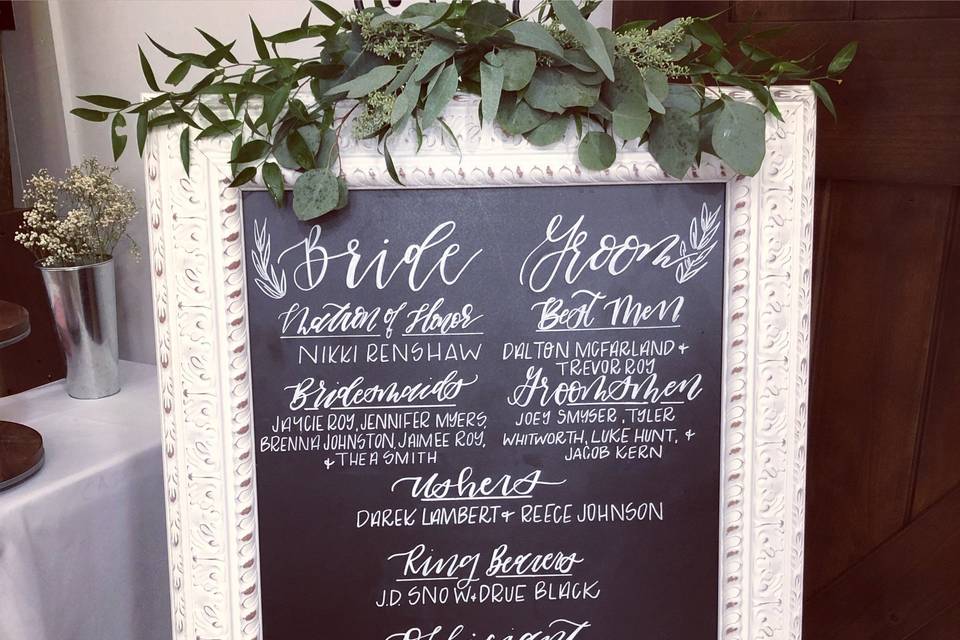 Bride
Matron of Honor
NIKKI RENSHAW
Bridesmaids
JAYCIE ROY, JENNIFER MYERS,
BRENNA JOHNSTON, JAIMEE ROY,
& THEA SMITH
Groom
Best Men
DALTON MCFARLAND &
TREVOR ROY
Groomsmen
JOEY SMYSER, TYLER
WHITWORTH, LUKE HUNT, &
JACOB KERN
Ushers
DAREK LAMBERT & REECE JOHNSON
Ring Bearers
J.D. SNOW & DRUE BLACK
Officiant